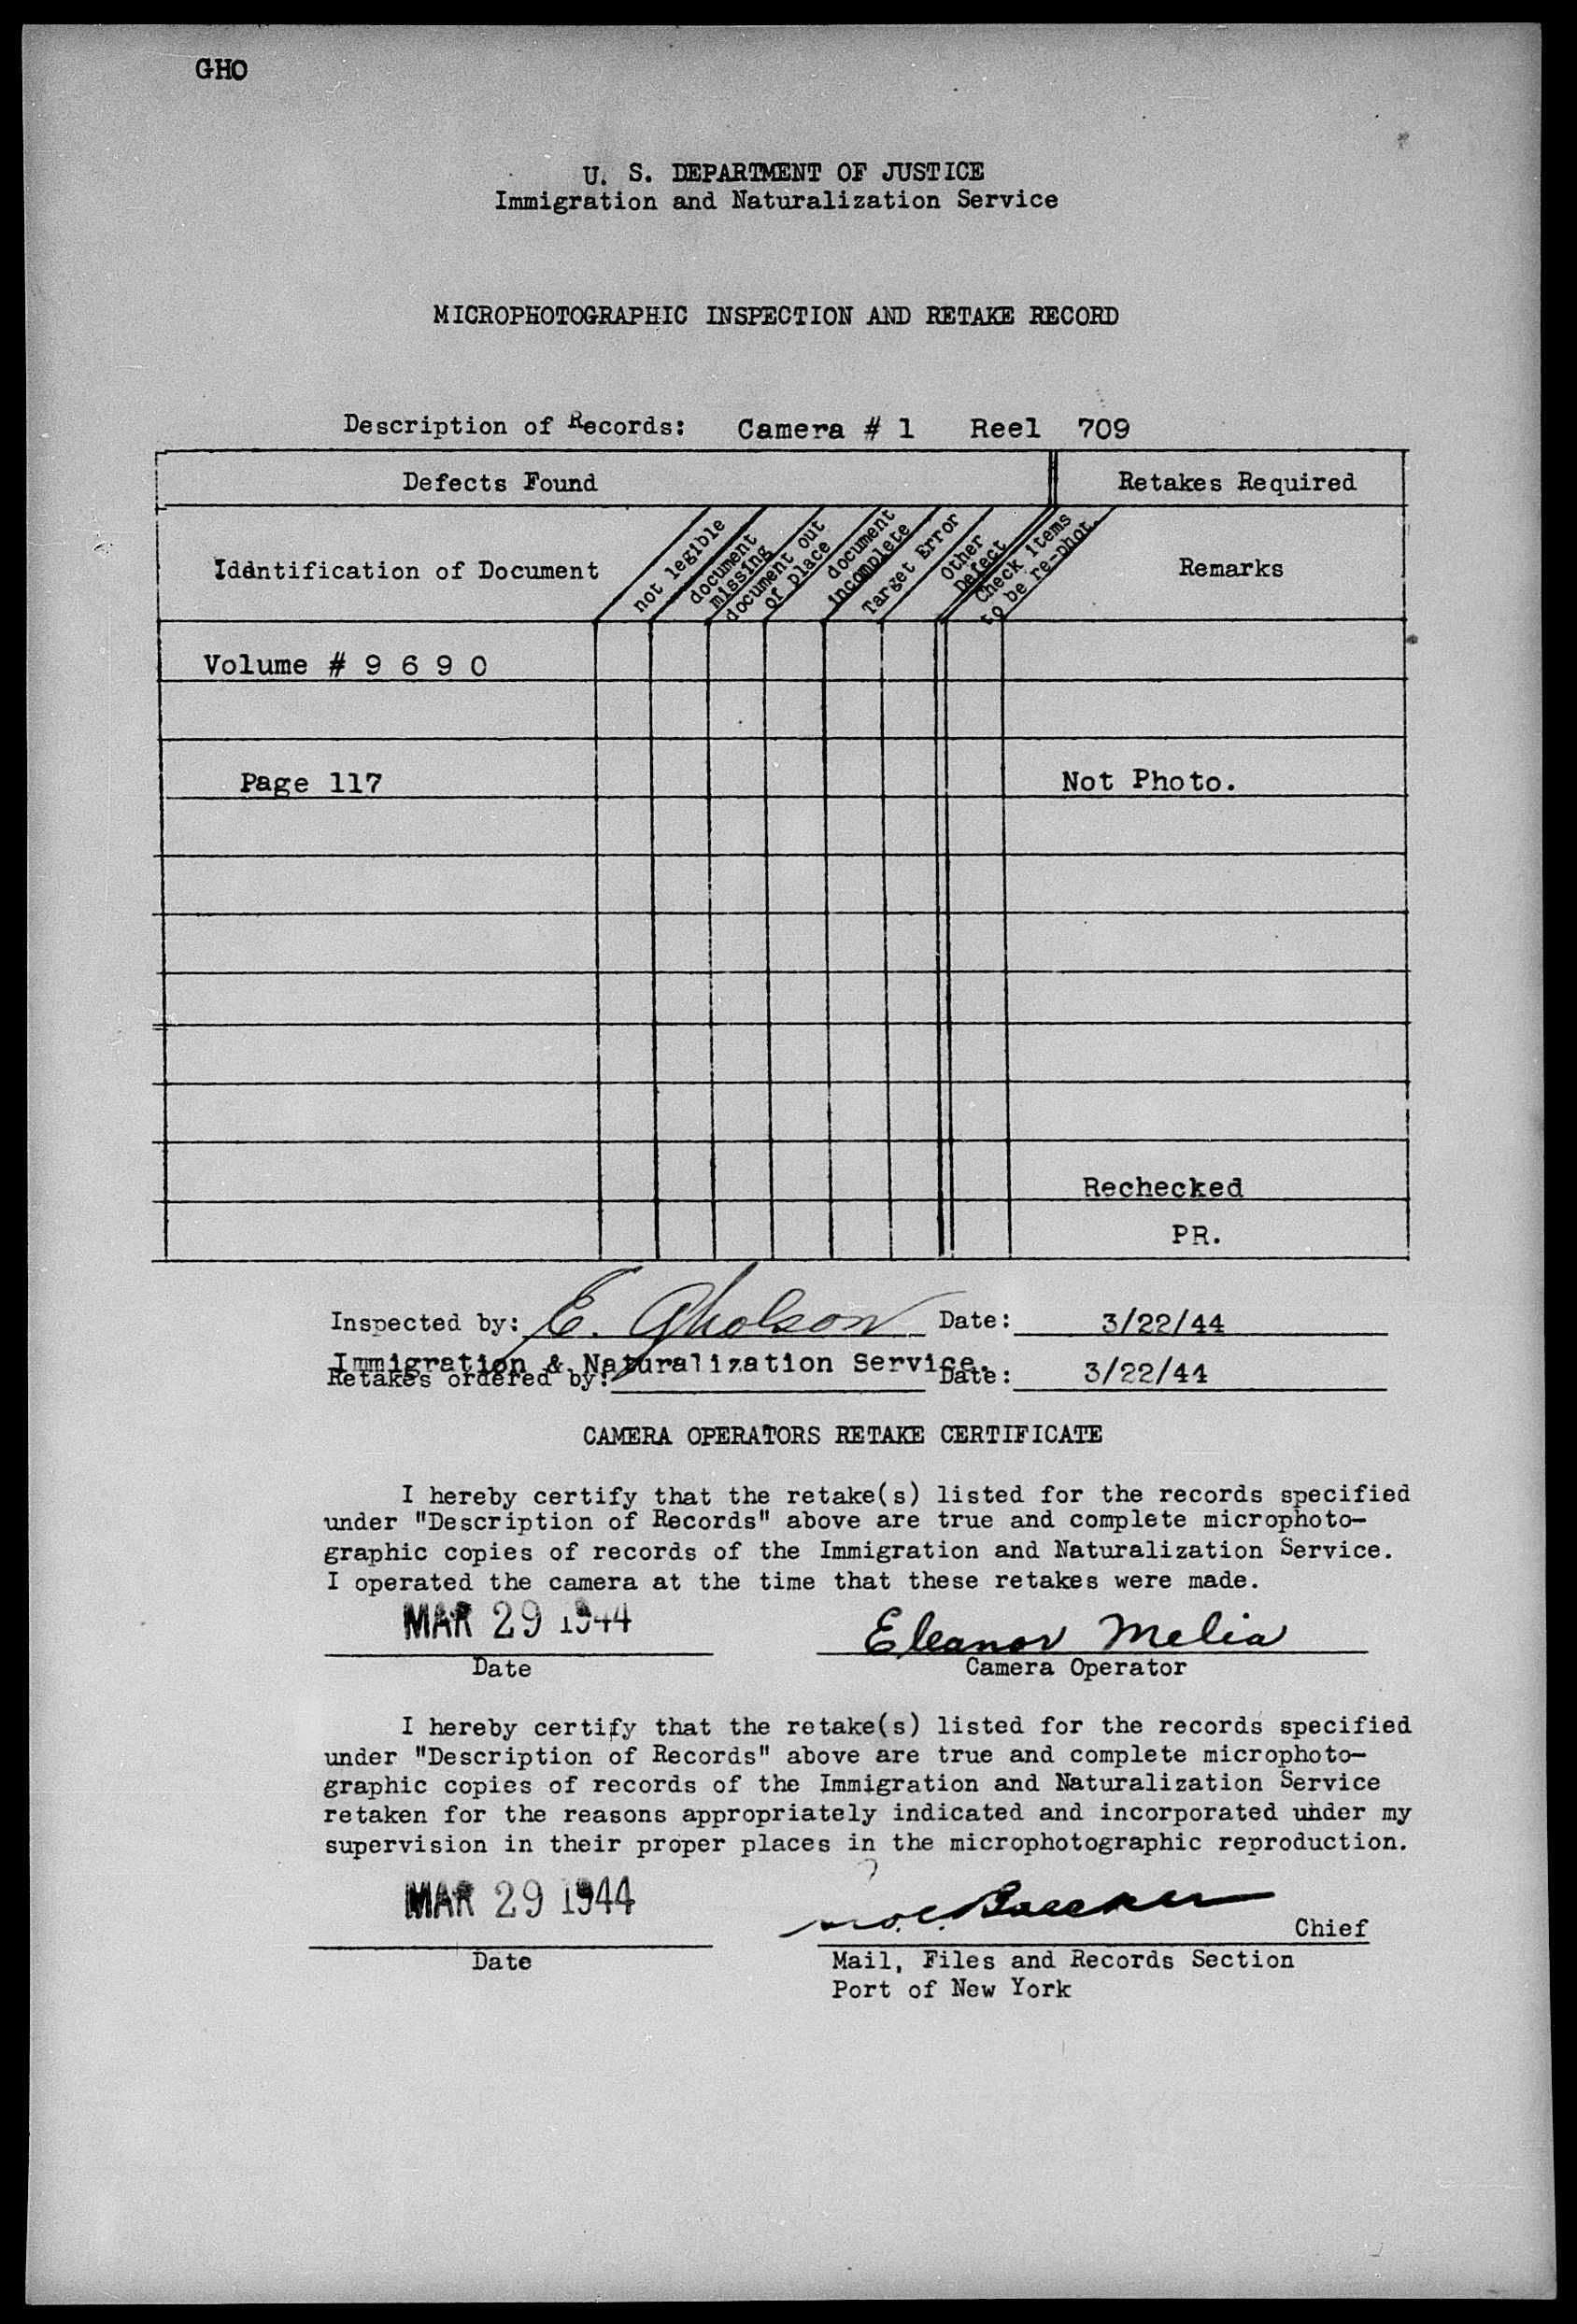 GHO
U. S. DEPARTMENT OF JUSTICE
Immigration and Naturalization Service
MICROPHOTOGRAPHIC INSPECTION AND RETAKE RECORD
Description of Records: Camera # 1 Reel 709
Defects Found Retakes Required
Iddntification of Document
not legible
document missing
document out of place
document incomplete
Target Error
Other Defect
Check items to be re-phot.
Remarks
Volume # 9 6 9 0
Page 117 Not Photo.
Rechecked
PR.
Inspected by: E. Gholson Date: 3/22/44
Immigration & Naturalization Service.
Retakes ordered by: Date: 3/22/44
CAMERA OPERATORS RETAKE CERTIFICATE
I hereby certify that the retake(s) listed for the records specified
under "Description of Records" above are true and complete microphoto-
graphic copies of records of the Immigration and Naturalization Service.
I operated the camera at the time that these retakes were made.
MAR 29 1944 Eleanor Melia
Date Camera Operator
I hereby certify that the retake(s) listed for the records specified
under "Description of Records" above are true and complete microphoto-
graphic copies of records of the Immigration and Naturalization Service
retaken for the reasons appropriately indicated and incorporated under my
supervision in their proper places in the microphotographic reproduction.
MAR 29 1944
Chief
Date Mail, Files and Records Section
Port of New York